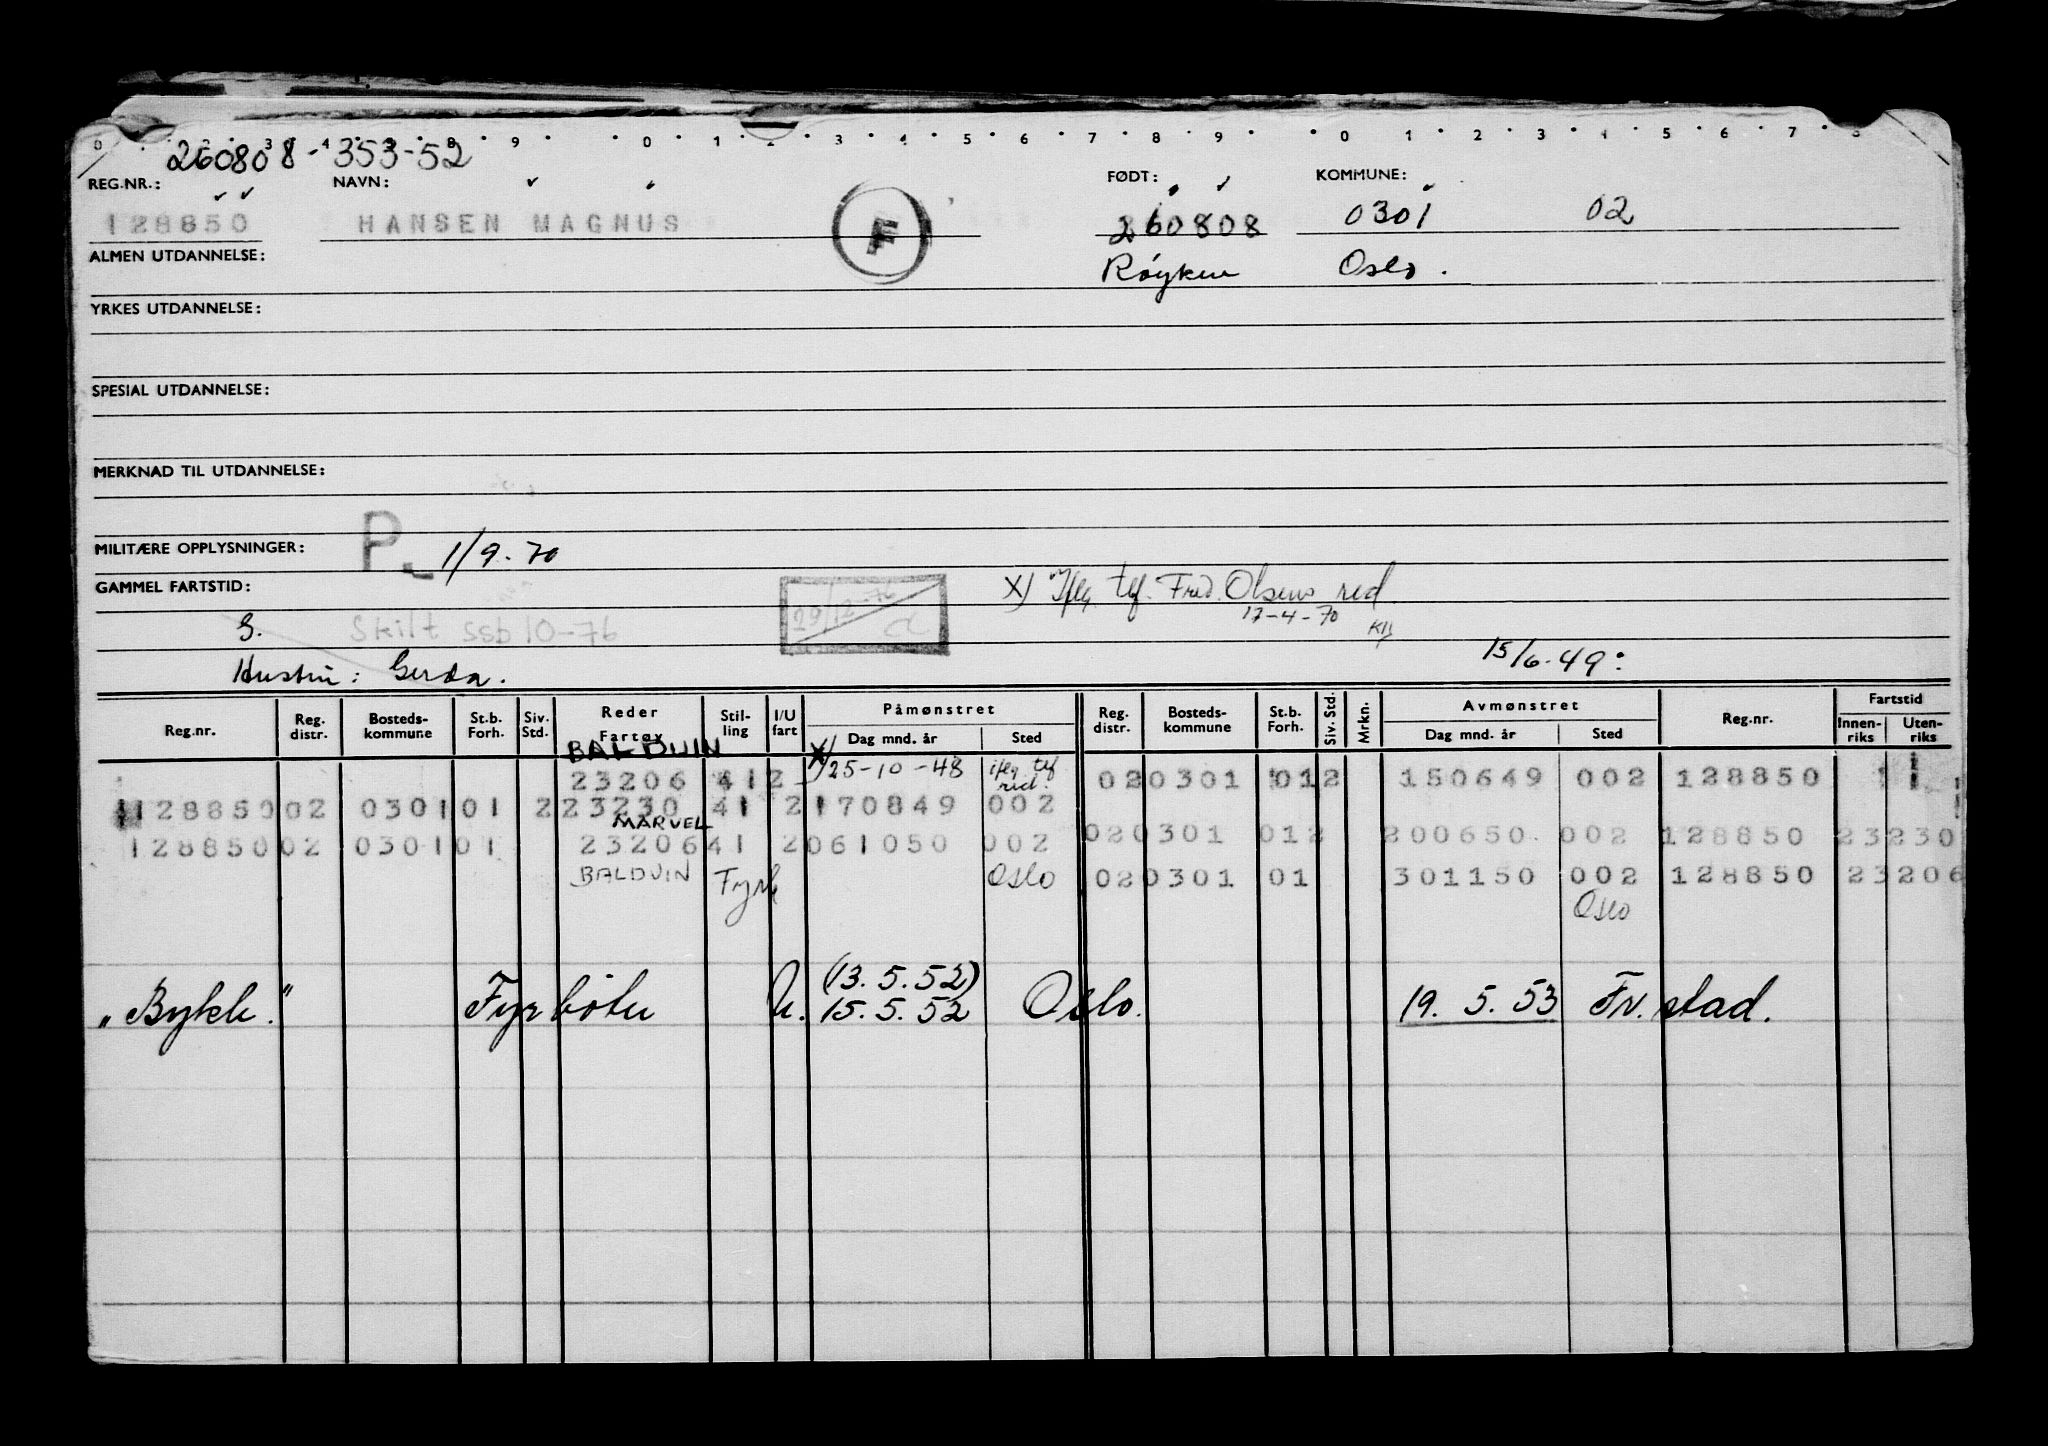 0 1 2 3 4 8 9 0 1 2 3 4 5 6 7 8 9 0 1 2 3 4 5 6 7 8
260808-353-52
REG.NR.: NAVN: FØDT: KOMMUNE:
128850 HANSEN MAGNUS F 260808 0301 02
ALMEN UTDANNELSE: Röyken Oslo.
YRKES UTDANNELSE:
SPESIAL UTDANNELSE:
MERKNAD TIL UTDANNELSE:
MILITÆRE OPPLYSNINGER: P 1/9.70
GAMMEL FARTSTID: 29/12-76 X) Ifлg. tlf. Fred. Olsens red
17-4-70
G. Skilt ssb 10-76
Hustru: Gerda. 15/6.49:
Reg.nr. Reg. distr. Bosteds-kommune St.b. Forh. Siv. Std. Reder Fartøy Stil-ling I/U fart Påmønstret Dag mnd. år Sted Reg. distr. Bosteds-kommune St.b. Forh. Siv. Std. Mrkn. Avmønstret Dag mnd. år Sted Reg.nr. Fartstid Innen-riks Uten-riks
BALDUIN
23206 41 2 X) 25-10-48 iflg. tlf red. 02 0301 01 2 150649 002 128850
128850 02 0301 01 2 23230 41 2 170849 002
MARVEL
02 0301 01 2 200650 002 128850 23230
128850 02 0301 01 23206 41 2 061050 002
BALDUIN Fyrb Oslo 02 0301 01 301150 002 128850 23206
Oslo
(13.5.52)
"Bykle." Fyrböter U. 15.5.52 Oslo. 19.5.53 Fr.stad.